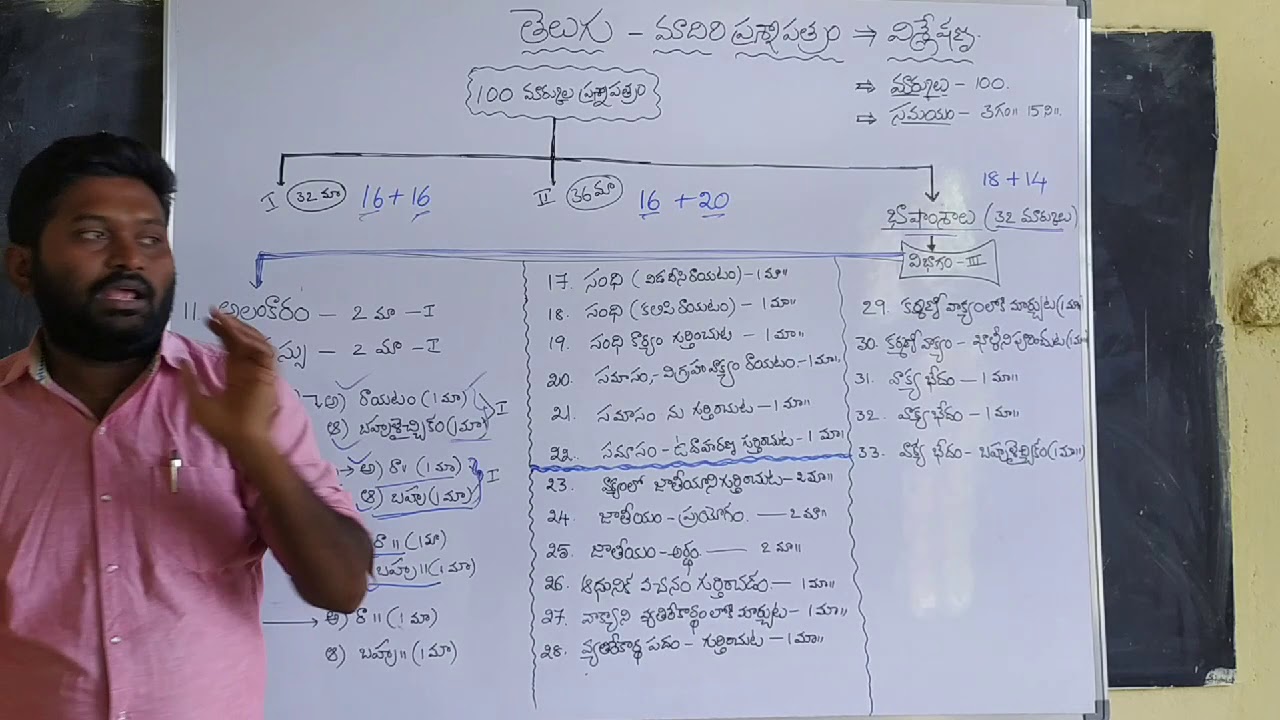 తెలుగు – మాదిరి ప్రశ్నాపత్రం ⇒ విశ్లేషణ.
100 మార్కుల ప్రశ్నాపత్రం
⇒ మార్కులు – 100.
⇒ సమయం – 3గం॥ 15ని॥.
I 32 మా 16+16
II 36మా 16 + 20
18 + 14
భాషాంశాలు (32 మార్కులు)
విభాగం – III
11. అలంకారం – 2 మా – I
స్సు – 2 మా – I
అ) రాయటం (1 మా)
ఆ) బహుళైచ్ఛికం (1మా) I
→ అ) రా॥ (1 మా)
ఆ) బహు (1 మా) I
రా॥ (1మా)
బహు॥ (1 మా)
అ) రా॥ (1 మా)
ఆ) బహు॥ (1మా)
17. సంధి (విడదీసి రాయటం) – 1 మా॥
18. సంధి (కలిపి రాయటం) – 1 మా॥
19. సంధి కార్యం గుర్తించుట – 1 మా॥
20. సమాసం – విగ్రహవాక్యం రాయటం – 1మా॥
21. సమాసం ను గుర్తించుట – 1 మా॥
22. సమాసం – ఉదాహరణ గుర్తించుట – 1 మా॥
23. వాక్యంలో జాతీయాని గుర్తించుట – 2మా॥
24. జాతీయం – ప్రయోగం. — 2 మా॥
25. జాతీయం – అర్థం. — 2 మా॥
26. ఆధునిక వచనం గుర్తించడం – 1 మా॥
27. వాక్యాని వ్యతిరేకార్థంలోకి మార్చుట – 1మా॥
28. వ్యతిరేకార్థ పదం – గుర్తించుట – 1మా॥
29. కర్మణి వాక్యంలోకి మార్చుట (1మా)
30. కర్మణి వాక్యం –
31. వాక్య భేదం – 1 మా॥
32. వాక్య భేదం – 1 మా॥
33. వాక్య భేదం – బహుళైచ్ఛికం (1మా॥)